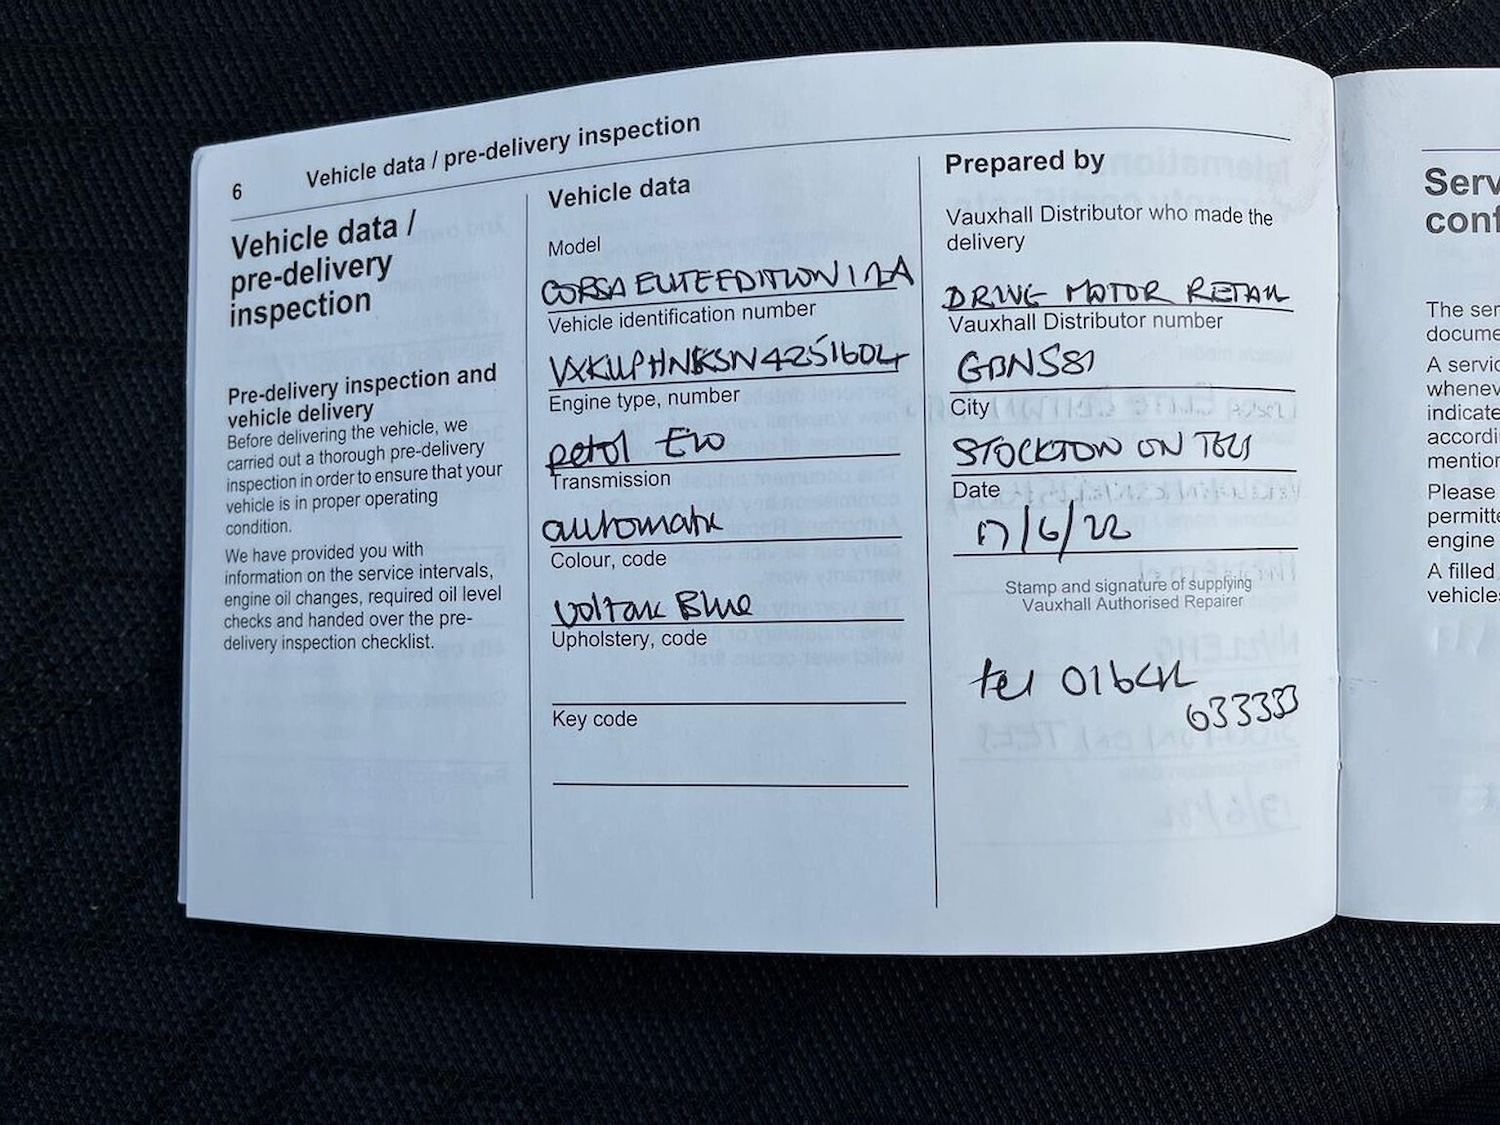 6
Vehicle data / pre-delivery inspection
Vehicle data /
pre-delivery
inspection
Pre-delivery inspection and
vehicle delivery
Before delivering the vehicle, we
carried out a thorough pre-delivery
inspection in order to ensure that your
vehicle is in proper operating
condition.
We have provided you with
information on the service intervals,
engine oil changes, required oil level
checks and handed over the pre-
delivery inspection checklist.
Vehicle data
Model
CORSA ELITE EDITION
Vehicle identification number
VXKUPHNKSN4251604
Engine type, number
petrol
Transmission
automatic
Colour, code
Voltaic Blue
Upholstery, code
Key code
Prepared by
Vauxhall Distributor who made the
delivery
DRIVE MOTOR RETAIL
Vauxhall Distributor number
GBN581
City
STOCKTON ON TEES
Date
17/6/22
Stamp and signature of supplying
Vauxhall Authorised Repairer
tel 01642
633333
Serv
conf
The ser
docume
A servic
wheneve
indicate
accordi
mention
Please
permitte
engine
A filled
vehicles